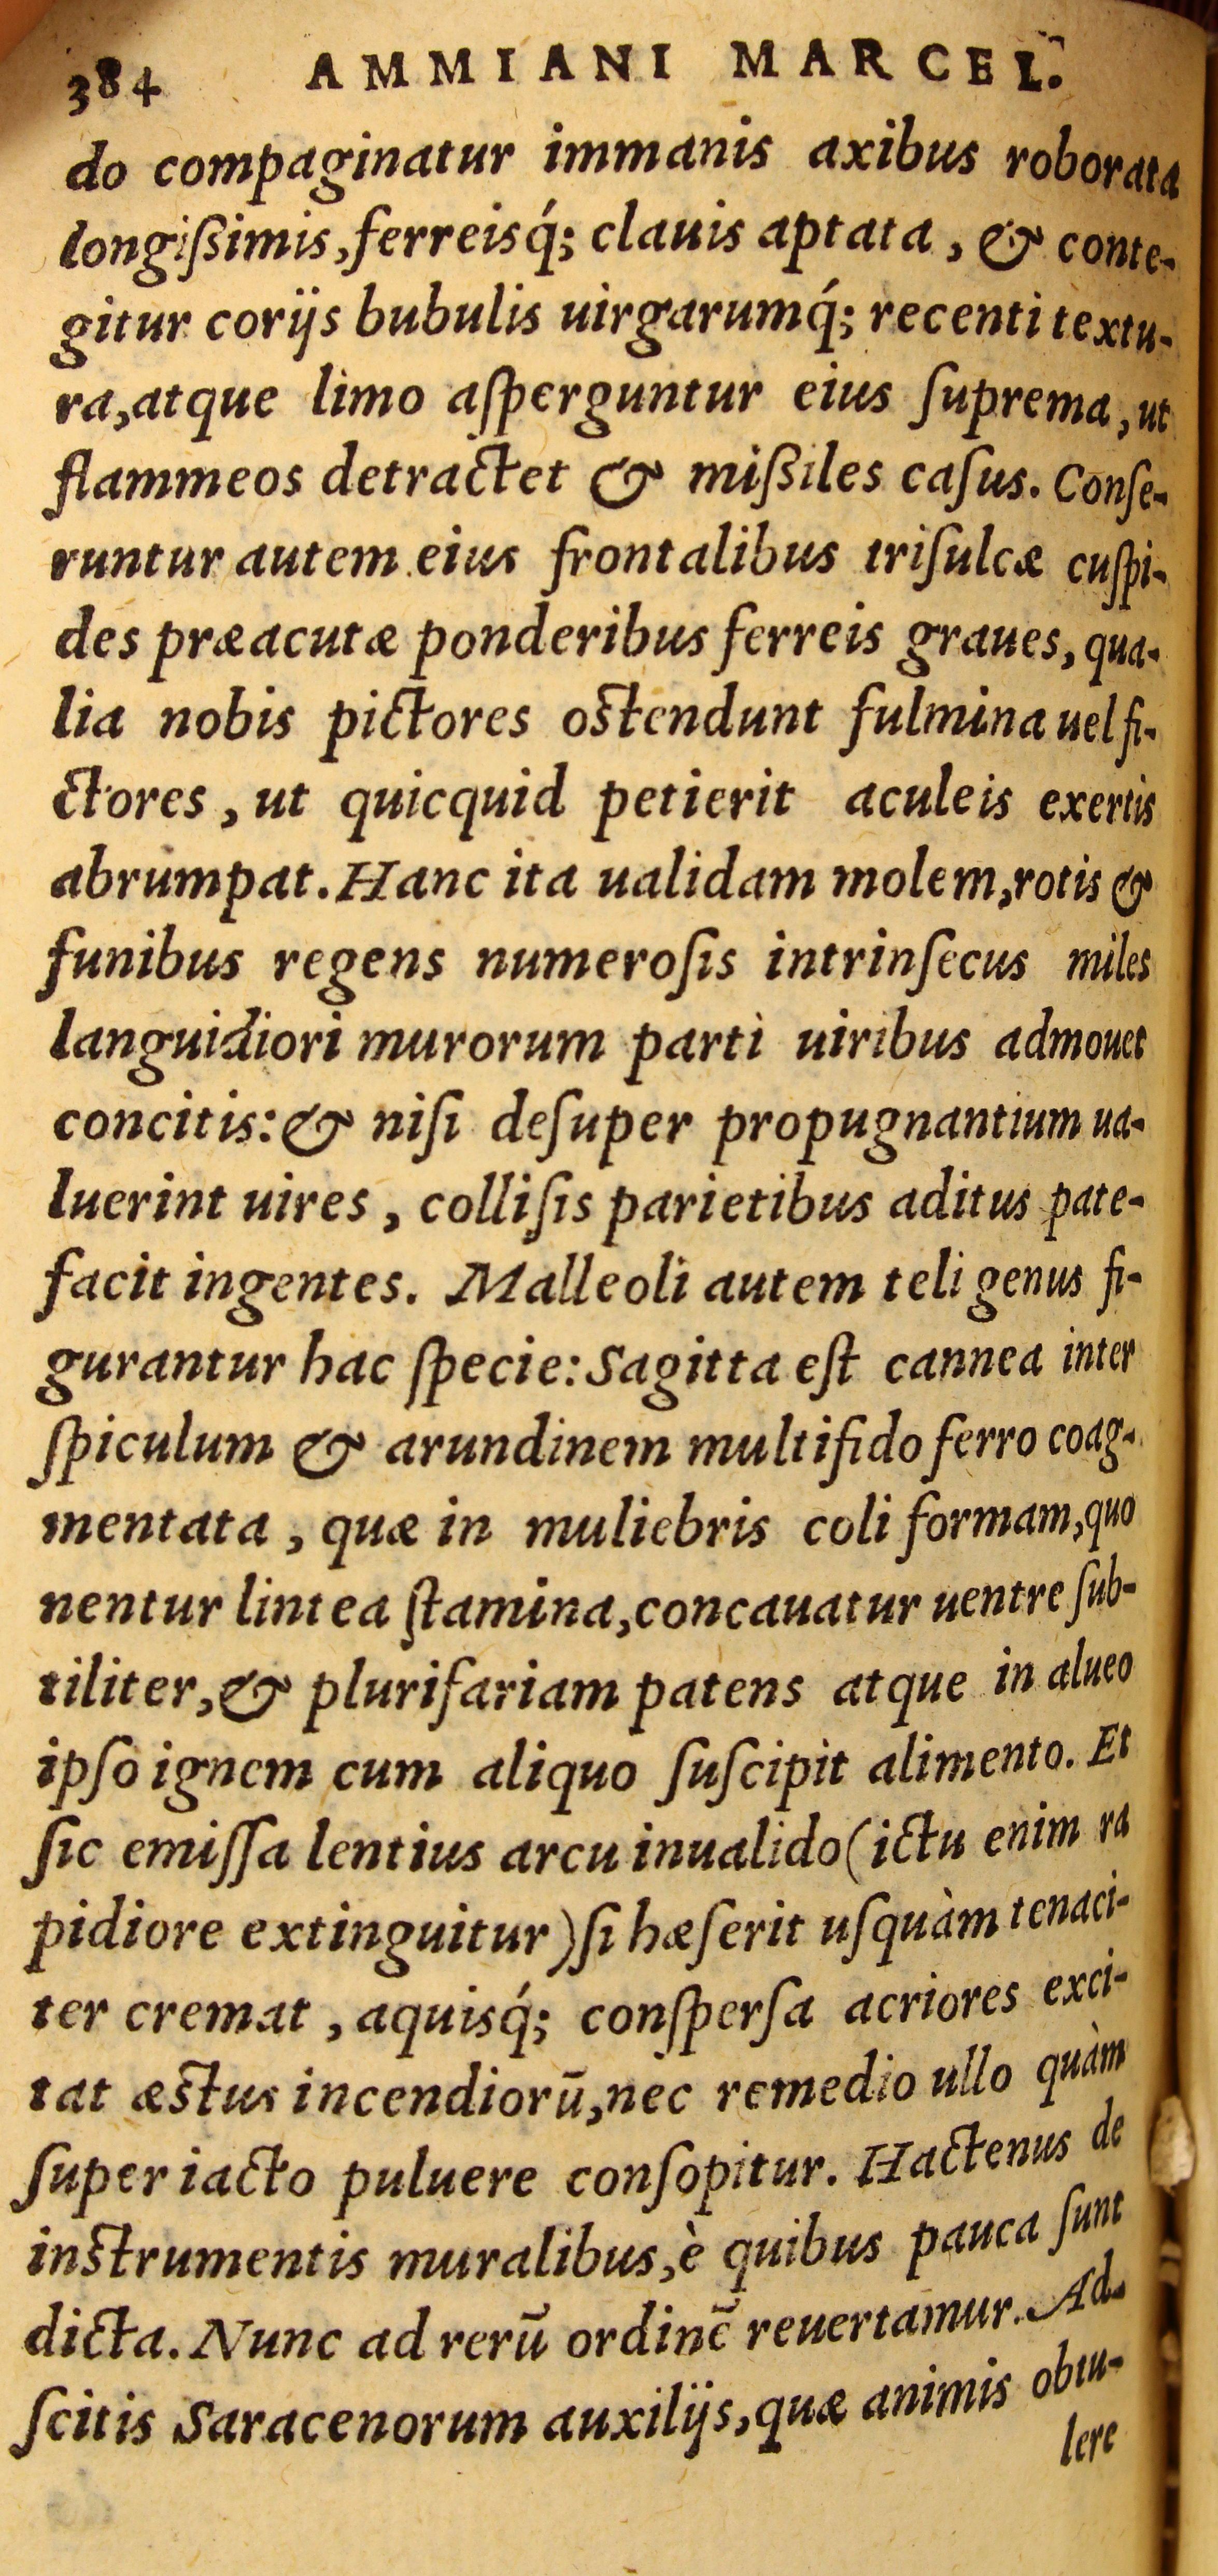 384 AMMIANI MARCEL.
do compaginatur immanis axibus roborata
longiſsimis, ferreisq́; clauis aptata, & conte-
gitur corijs bubulis uirgarumq́; recenti textu-
ra, atque limo aſperguntur eius ſuprema, ut
flammeos detractet & miſsiles caſus. Conſe-
runtur autem eius frontalibus triſulcæ cuſpi-
des præacutæ ponderibus ferreis graues, qua-
lia nobis pictores oſtendunt fulmina uel fi-
ctores, ut quicquid petierit aculeis exertis
abrumpat. Hanc ita ualidam molem, rotis &
funibus regens numeroſis intrinſecus miles
languidiori murorum parti uiribus admouet
concitis: & niſi deſuper propugnantium ua-
luerint uires, colliſis parietibus aditus pate-
facit ingentes. Malleoli autem teli genus fi-
gurantur hac ſpecie: Sagitta eſt cannea inter
ſpiculum & arundinem multifido ferro coag-
mentata, quæ in muliebris coli formam, quo
nentur lintea ſtamina, concauatur uentre ſub-
tiliter, & plurifariam patens atque in alueo
ipſo ignem cum aliquo ſuſcipit alimento. Et
ſic emiſſa lentius arcu inualido (ictu enim ra
pidiore extinguitur) ſi hæſerit uſquàm tenaci-
ter cremat, aquisq́; conſperſa acriores exci-
tat æſtus incendiorū, nec remedio ullo quàm
ſuper iacto puluere conſopitur. Hactenus de
inſtrumentis muralibus, è quibus pauca ſunt
dicta. Nunc ad rerū ordinē reuertamur. Ad-
ſcitis Saracenorum auxilijs, quæ animis obtu-
lere